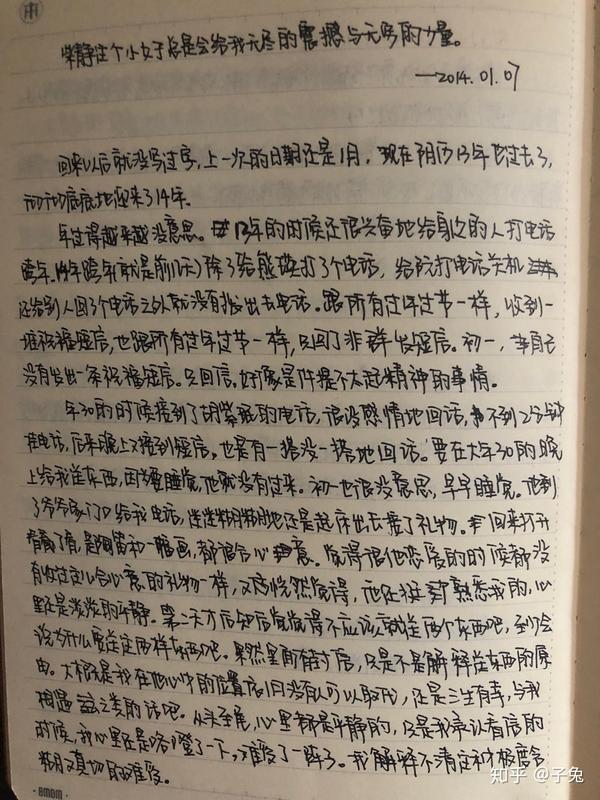 柴静这个小女子总是会给我无尽的震撼与无穷的力量。
—2014.01.07
回来以后就没写过字，上一次的日期还是1月，现在阴历13年也过去了，
彻彻底底地迎来了14年。
年过得越来越没意思。13年的时候还很兴奋地给身边的人打电话
跨年，14年跨年(就是前几天)除了给熊 打了3个电话，给阮打电话关机
还给别人回了个电话之外就没有拨出去电话。跟所有过年过节一样，收到一
堆祝福短信，也跟所有过年过节一样，只回了非群发短信。初一，自己
没有发出一条祝福短信。只回信。好像是件提不太起精神的事情。
年30的时候接到了胡紫 的电话，很没感情地回话，不到2分钟
挂电话，后来晚上又接到短信，也是有一搭没一搭地回话。要在大年30的晚
上给我送东西，因为要睡觉，他就没有过来。初一也很没意思，早早睡觉。他到
了爷爷家门口给我电话，迷迷糊糊地还是起床出去接了礼物。回来打开
看了看，是 笛和一幅画，都很合心意。觉得跟他恋爱的时候都没
有收过这么合心意的礼物一样，又恍然觉得，他还挺熟悉我的，心
里还是淡淡的平静。第二天才后知后觉觉得不应该就送两个东西吧，至少会
说为什么要送这两样东西吧。果然里面有封信，只是不是解释送东西的原
由。大概是我在他心中的位置后1月没有人可以取代，还是三生有幸，与我
相遇 这之类的话吧。从头至尾，心里都是平静的，只是我承认看信的
时候，我心里还是咯噔了一下，难受了一阵子。我解释不清这种极度含
糊又真切的难受。
8MOM
知乎 @子兔